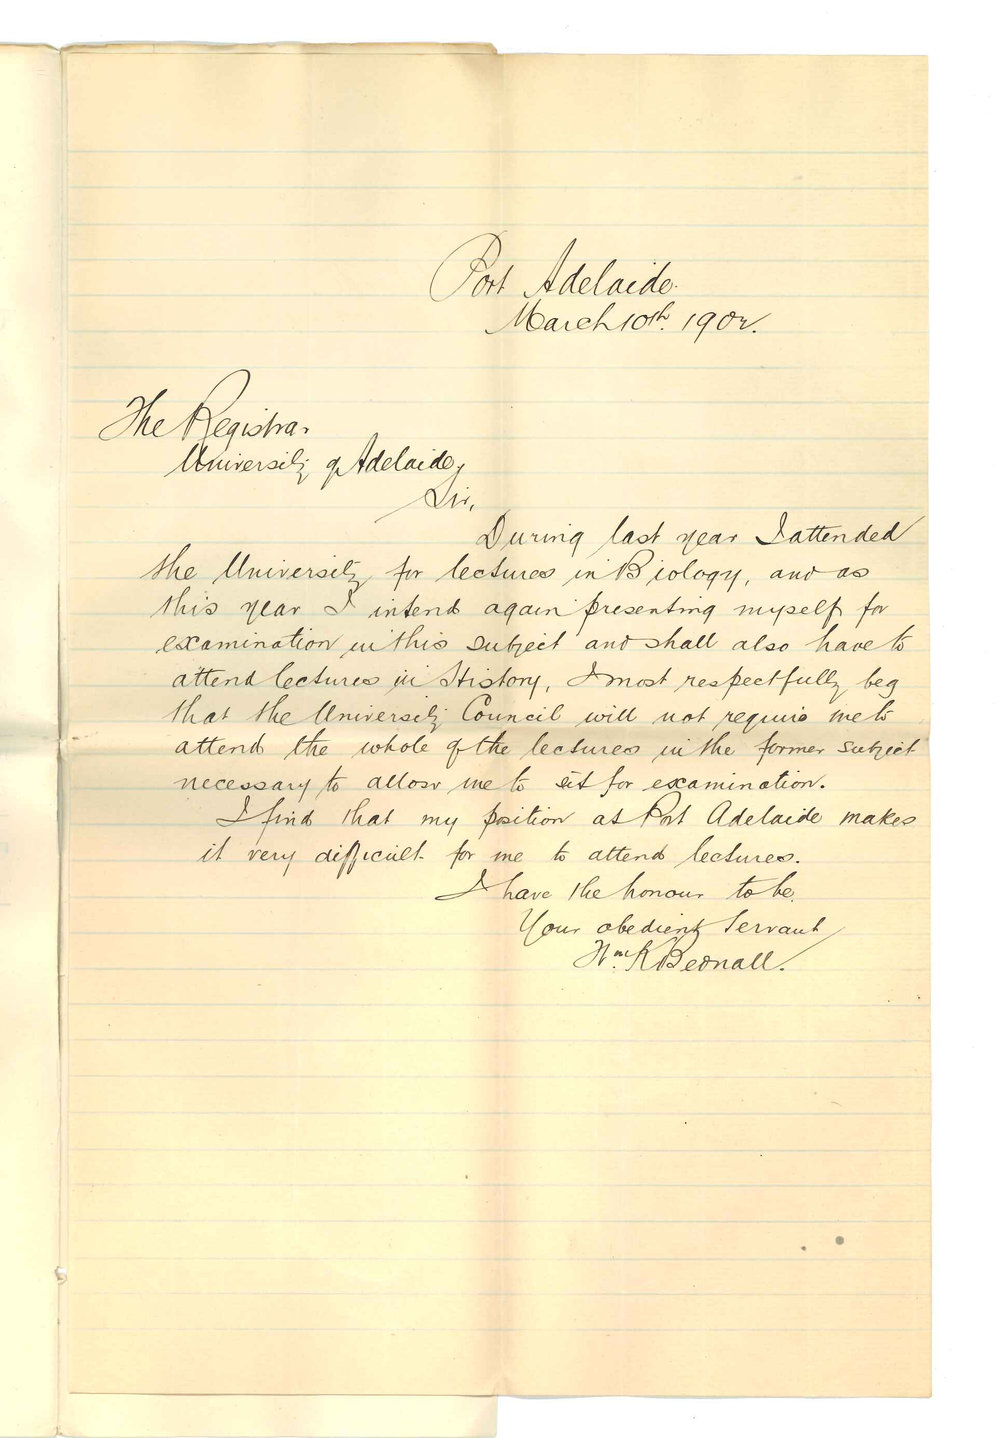 Port Adelaide.
March 10th. 1902.
The Registrar
University of Adelaide,
Sir,
During last year I attended
the University for lectures in Biology, and as
this year I intend again presenting myself for
examination in this subject and shall also have to
attend lectures in History, I most respectfully beg
that the University Council will not require me to
attend the whole of the lectures in the former subject
necessary to allow me to sit for examination.
I find that my position at Port Adelaide makes
it very difficult for me to attend lectures.
I have the honour to be.
Your obedient Servant
Wm. K Bednall.